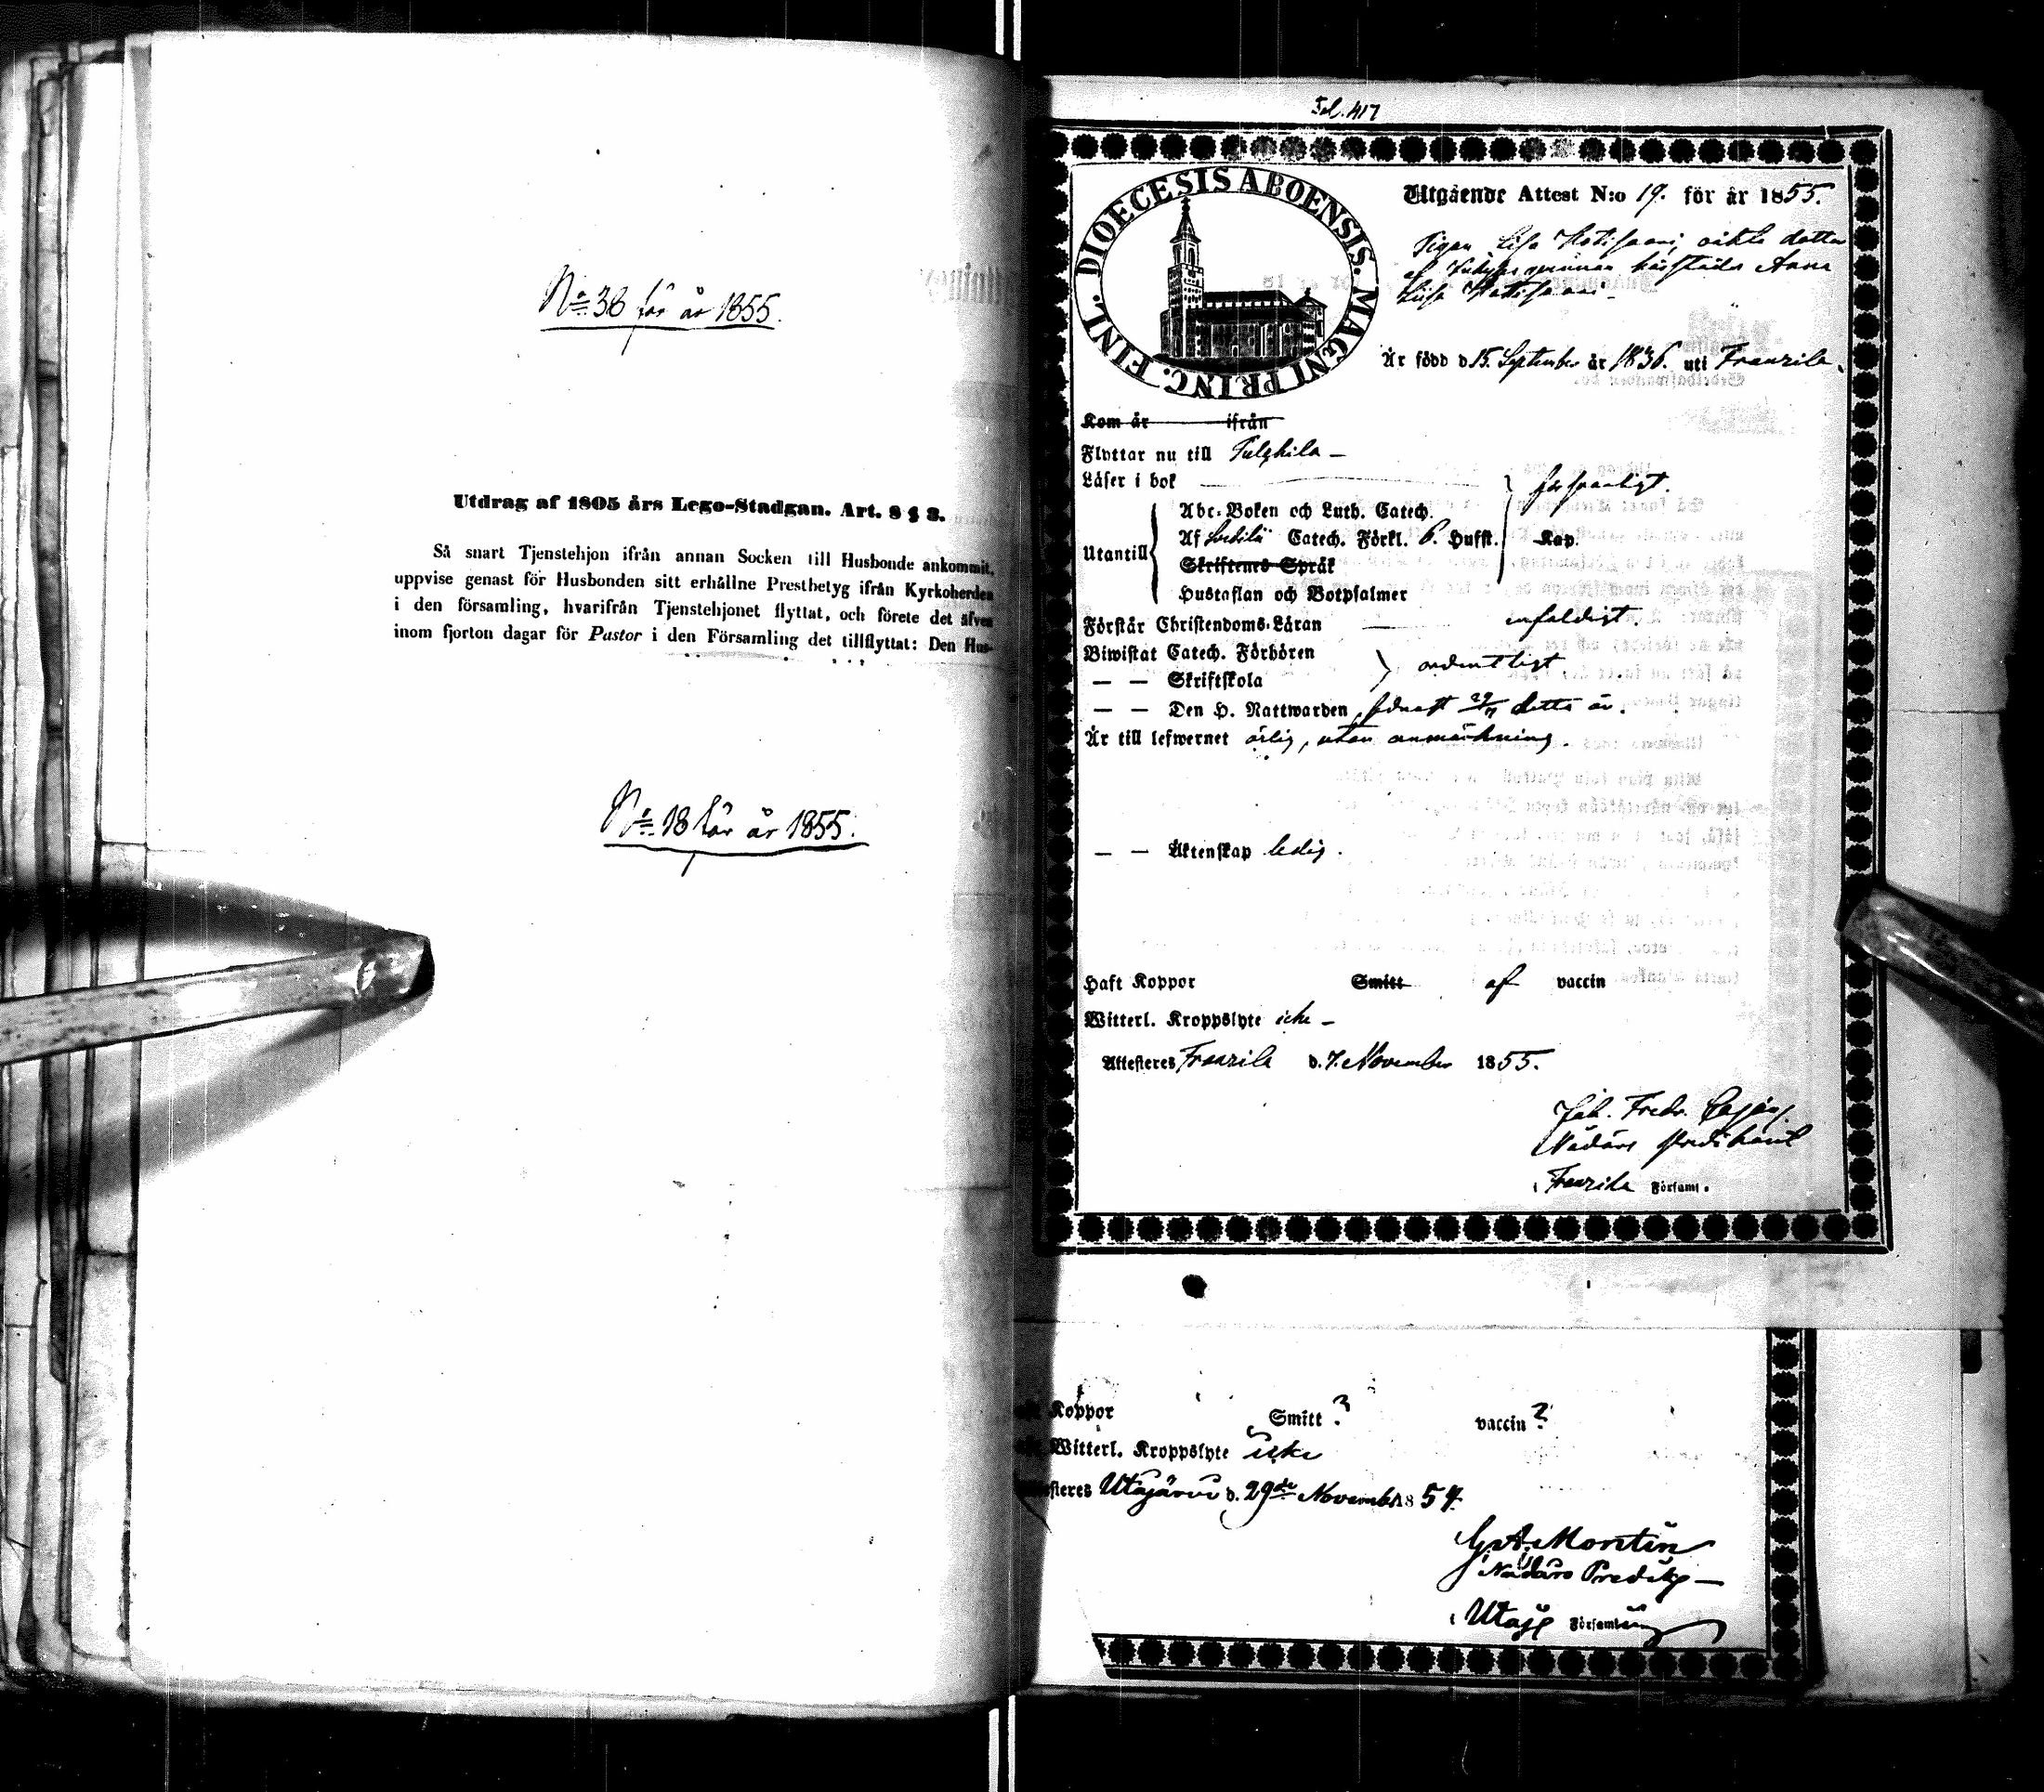 No 38 för år 1855.
Utdrag af 1805 års Lego-Stadgan. Art. 8 § 3.
Så snart Tjenstehjon ifrån annan Socken till Husbonde ankommit,
uppvise genast för Husbonden sitt erhållne Prestbetyg ifrån Kyrkoherden
i den församling, hvarifrån Tjenstehjonet flyttat, och förete det äfven
inom fjorton dagar för Pastor i den Församling det tillflyttat: Den Hus-
No 18 för år 1855.
Fol. 417
DIOECESIS ABOENSIS. MAGNI PRINC. FINL.
Utgående Attest N:o 19. för år 1855.
Pigan Lisa dotter
af Anna
Lisa
Är född d 15. September år 1836. uti Frantzila.
Kom år ifrån
Flyttar nu till Pulkkila —
Läser i bok försvarligt.
Abc-Boken och Luth. Catech.
Utantill Af Catech. Förkl. 6. Hufst. Kap.
Skriftenes Språk
Hustaflan och Botpsalmer
Förstår Christendoms-Läran enfaldigt
Biwistat Catech. Förhören ordentligt
— — Skriftskola
— — Den H. Nattwarden, senast detta år.
Är till lefwernet ärlig, utan anmärkning.
— — Äktenskap ledig.
Haft Koppor Smitt af vaccin
Witterl. Kroppslyte icke —
Attesteres Frantzila d. 7. November 1855.
Joh. Fredr. Cajan,
Nådårs Predikant
i Frantzila Församl.
Koppor Smitt ? vaccin ?
Witterl. Kroppslyte icke
Utajärvi d. 29de November 1854.
G. A. Montin
Nådårs Predik
i Utajä Församling